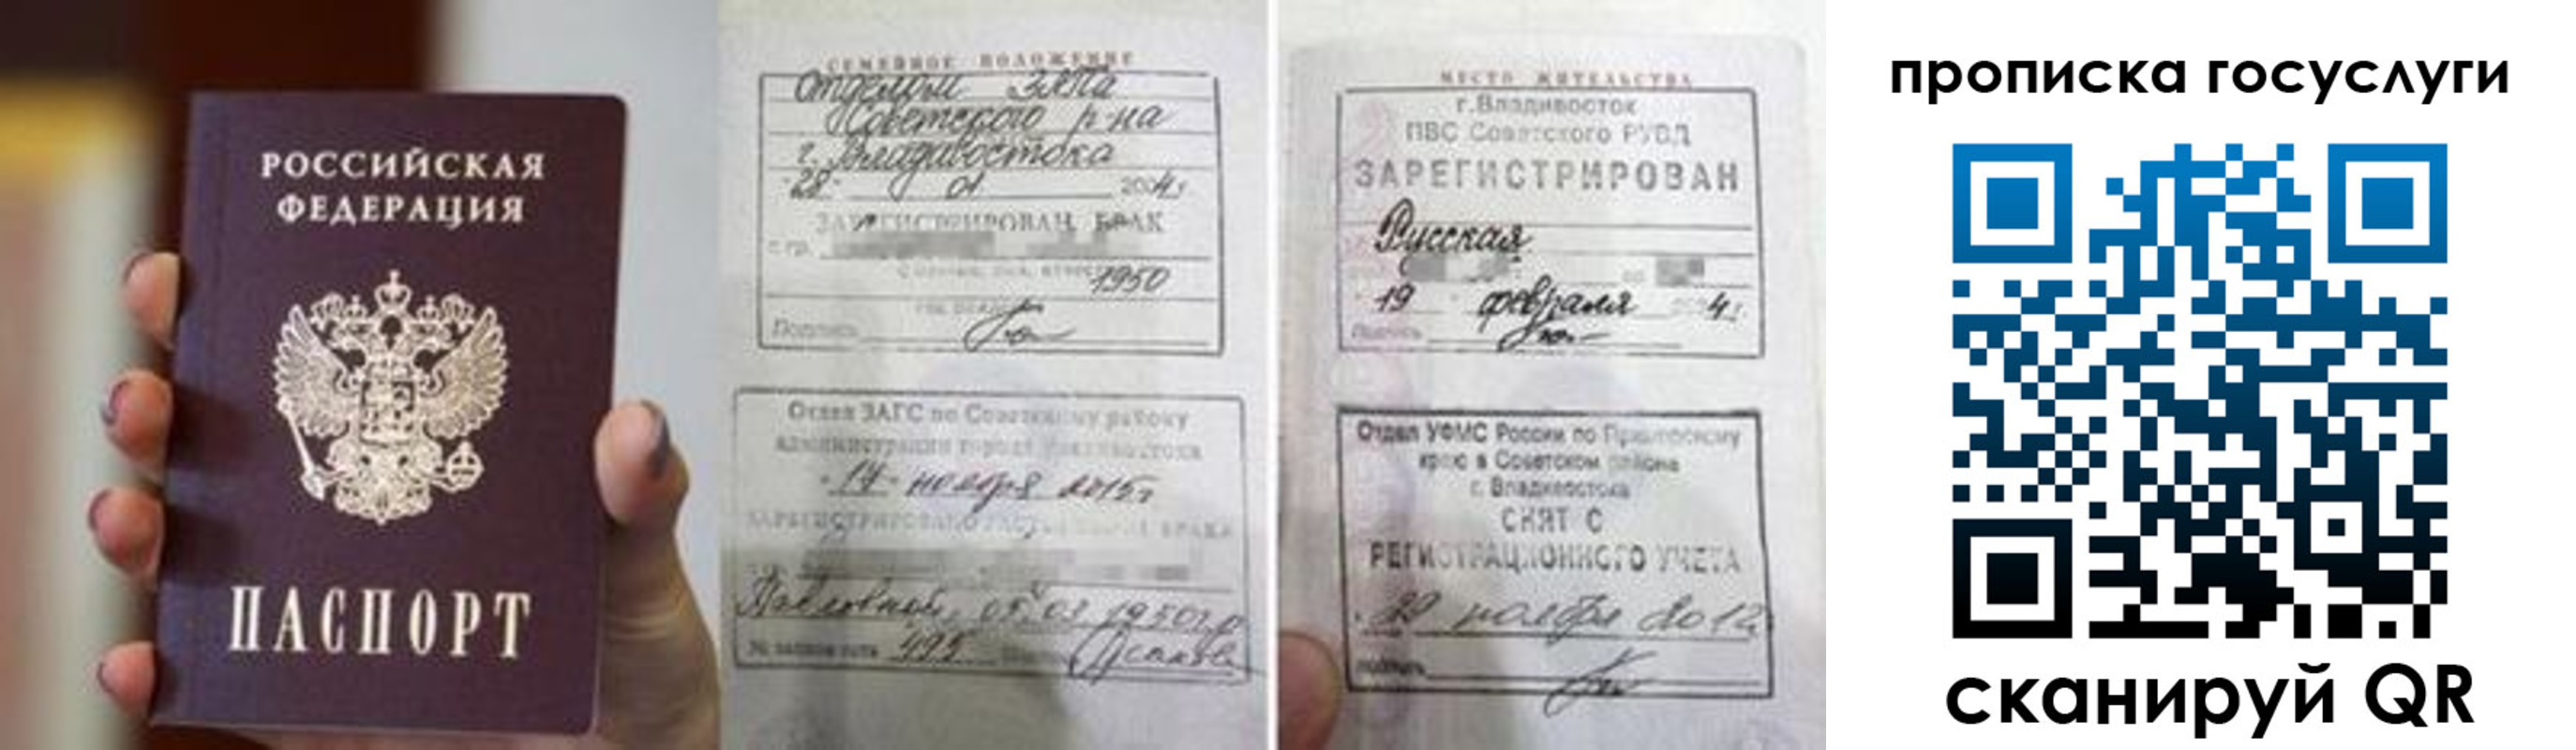 РОССИЙСКАЯ
ФЕДЕРАЦИЯ
ПАСПОРТ
СЕМЕЙНОЕ ПОЛОЖЕНИЕ
Отделом ЗАГСа
Советского р-на
г. Владивостока
"28" 01 2004 г.
ЗАРЕГИСТРИРОВАН БРАК
с гр.
1950
Подпись
Отдел ЗАГС по Советскому району
администрации города Владивостока
"17" ноября 2015г
Павловной, 05.03.1950г.р
№ 495
МЕСТО ЖИТЕЛЬСТВА
г.Владивосток
ПВС Советского РУВД
ЗАРЕГИСТРИРОВАН
Русская
19 февраля 4г
Подпись
Отдел УФМС России по Приморскому
краю в Советском районе
г. Владивостока
СНЯТ С
РЕГИСТРАЦИОННОГО УЧЕТА
ноября 2012
подпись
прописка госуслуги
сканируй QR